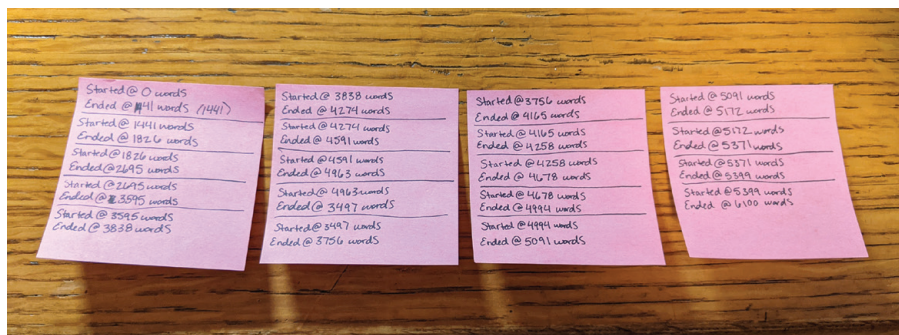 Started @ 0 words
Ended @ 41 words (1441)
Started @ 1441 words
Ended @ 1826 words
Started @ 1826 words
Ended @ 2695 words
Started @ 2695 words
Ended @ 3595 words
Started @ 3595 words
Ended @ 3838 words
Started @ 3838 words
Ended @ 4274 words
Started @ 4274 words
Ended @ 4591 words
Started @ 4591 words
Ended @ 4963 words
Started @ 4963 words
Ended @ 3497 words
Started @ 3497 words
Ended @ 3756 words
Started @ 3756 words
Ended @ 4165 words
Started @ 4165 words
Ended @ 4258 words
Started @ 4258 words
Ended @ 4678 words
Started @ 4678 words
Ended @ 4994 words
Started @ 4994 words
Ended @ 5091 words
Started @ 5091 words
Ended @ 5172 words
Started @ 5172 words
Ended @ 5371 words
Started @ 5371 words
Ended @ 5399 words
Started @ 5399 words
Ended @ 6100 words